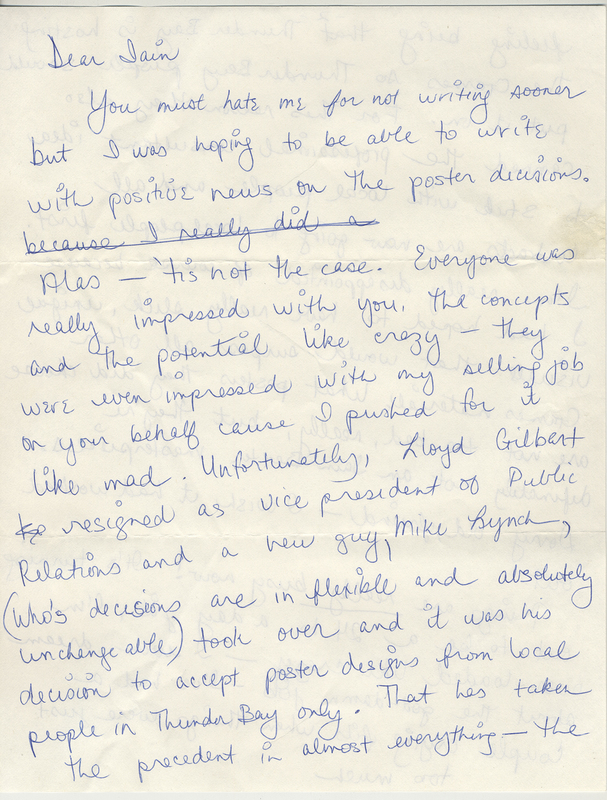 Dear Iain
You must hate me for not writing sooner
but I was hoping to be able to write
with positive news on the poster decisions.
because I really did a
Alas — 'tis not the case. Everyone was
really impressed with you, the concepts
and the potential like crazy — they
were even impressed with my selling job
on your behalf cause I pushed for it
like mad. Unfortunately, Lloyd Gilbert
resigned as vice president of Public
Relations and a new guy, Mike Lynch,
(who's decisions are in flexible and absolutely
unchangeable) took over and it was his
decision to accept poster designs from local
people in Thunder Bay only. That has taken
the precedent in almost everything — the